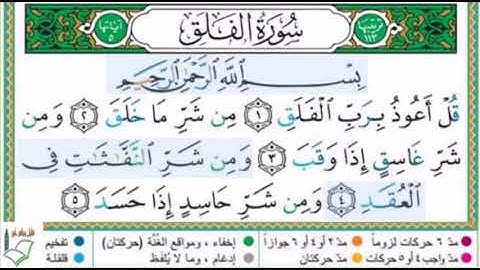 ترتيبها ١١٣ سُورَةُ الفَلَقِ آياتها ٥
بِسْمِ ٱللَّهِ ٱلرَّحْمَٰنِ ٱلرَّحِيمِ
قُلْ أَعُوذُ بِرَبِّ ٱلْفَلَقِ ۝١ مِن شَرِّ مَا خَلَقَ ۝٢ وَمِن
شَرِّ غَاسِقٍ إِذَا وَقَبَ ۝٣ وَمِن شَرِّ ٱلنَّفَّٰثَٰتِ فِى
ٱلْعُقَدِ ۝٤ وَمِن شَرِّ حَاسِدٍ إِذَا حَسَدَ ۝٥
مدّ ٦ حركات لزوماً مدّ ٢ أو ٤ أو ٦ جوازاً إخفاء، ومواقع الغُنَّة (حركتان) تفخيم
مدّ واجب ٤ أو ٥ حركات مدّ حركتان إدغام، وما لا يُلفَظ قلقلة